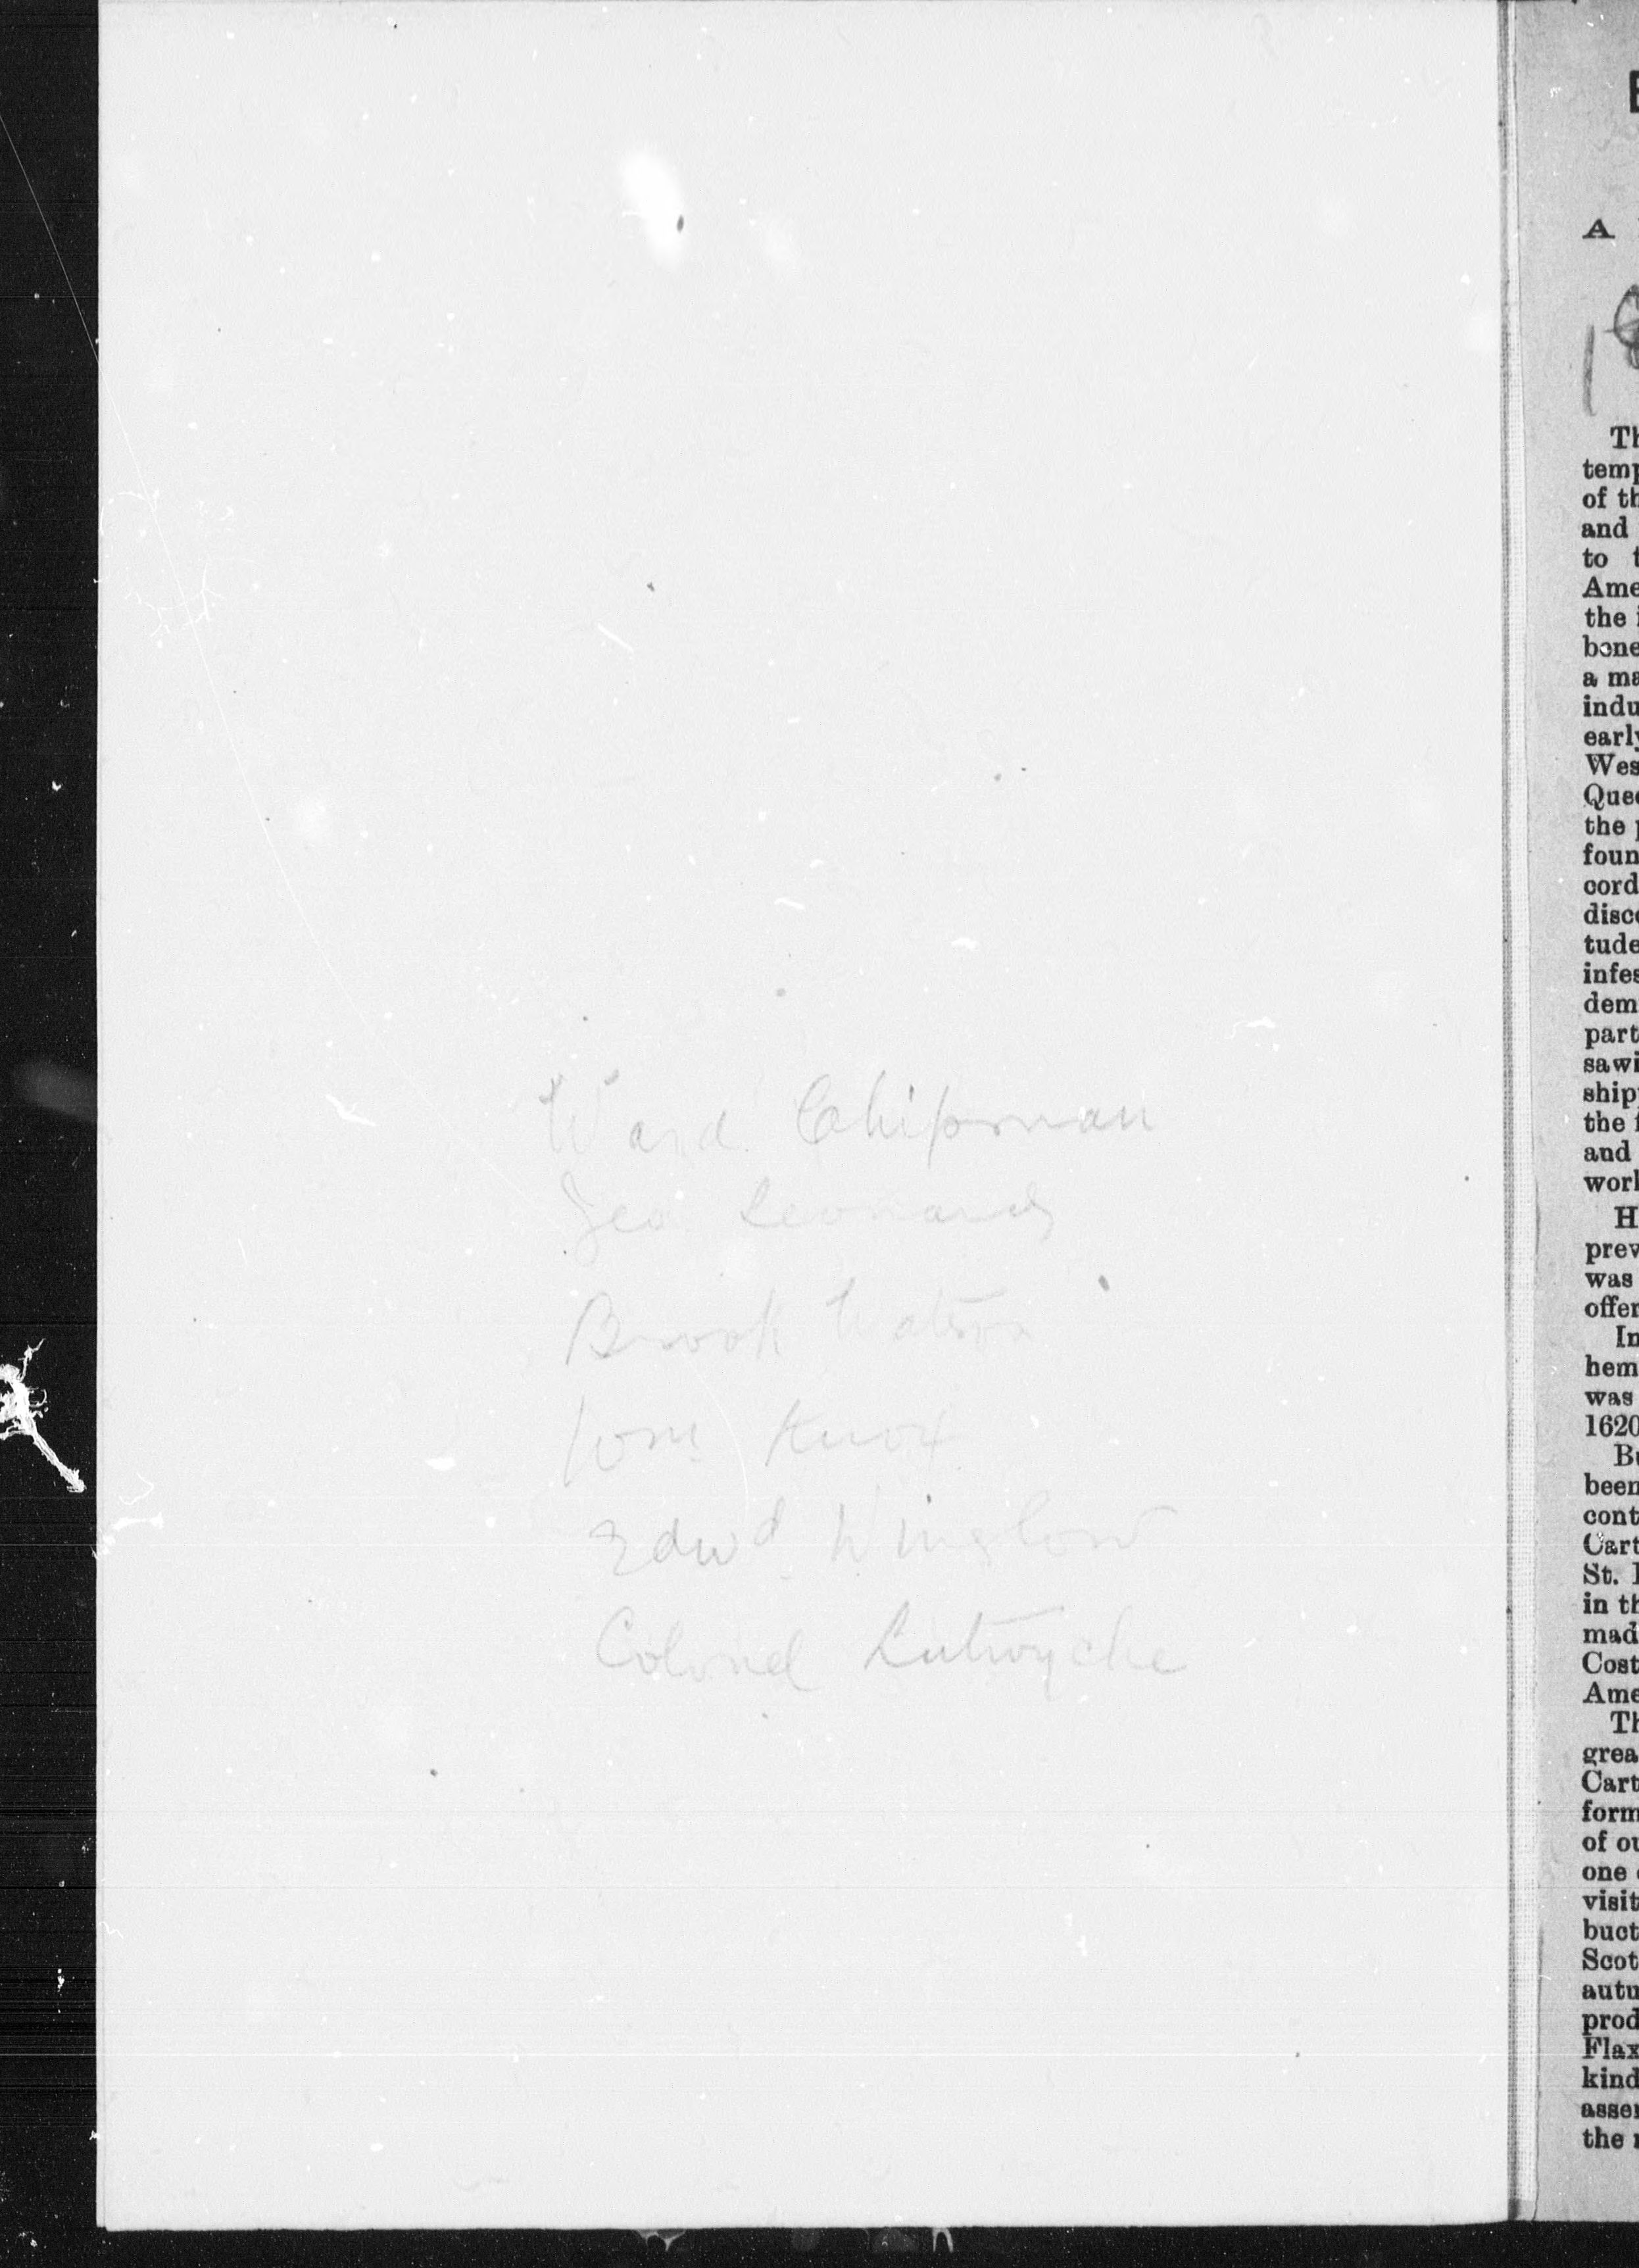 Ward Chipman
Geo Leonard
Brook Watson
Wm Knox
Edwd Winslow
Colonel Lutwyche
A
18
Th
temp
of th
and
to t
Ame
the i
bone
a ma
indu
early
Wes
Que
the p
foun
cord
disco
tude
infes
dem
part
sawi
ship
the f
and
work
H
prev
was
offer
In
hem
was
1620
Bu
been
cont
Cart
St. I
in th
mad
Cost
Ame
Th
grea
Cart
form
of ou
one
visit
buct
Scot
autu
prod
Flax
kind
asse
the